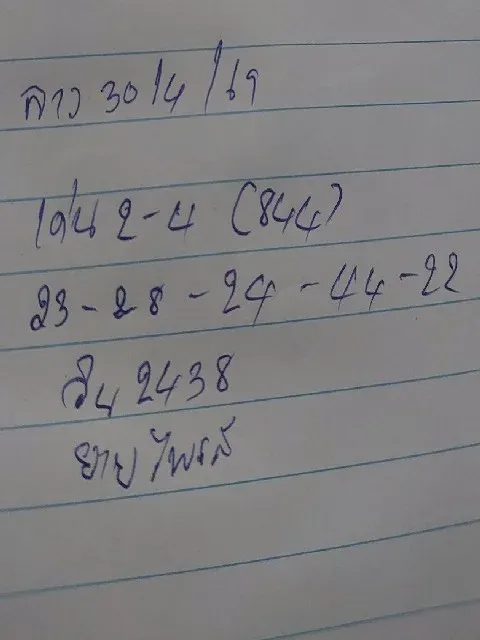 ลาว 30/4/69
เด่น 2-4 (844)
23-28-24-44-22
วิ่น 2438
ยายไพรส